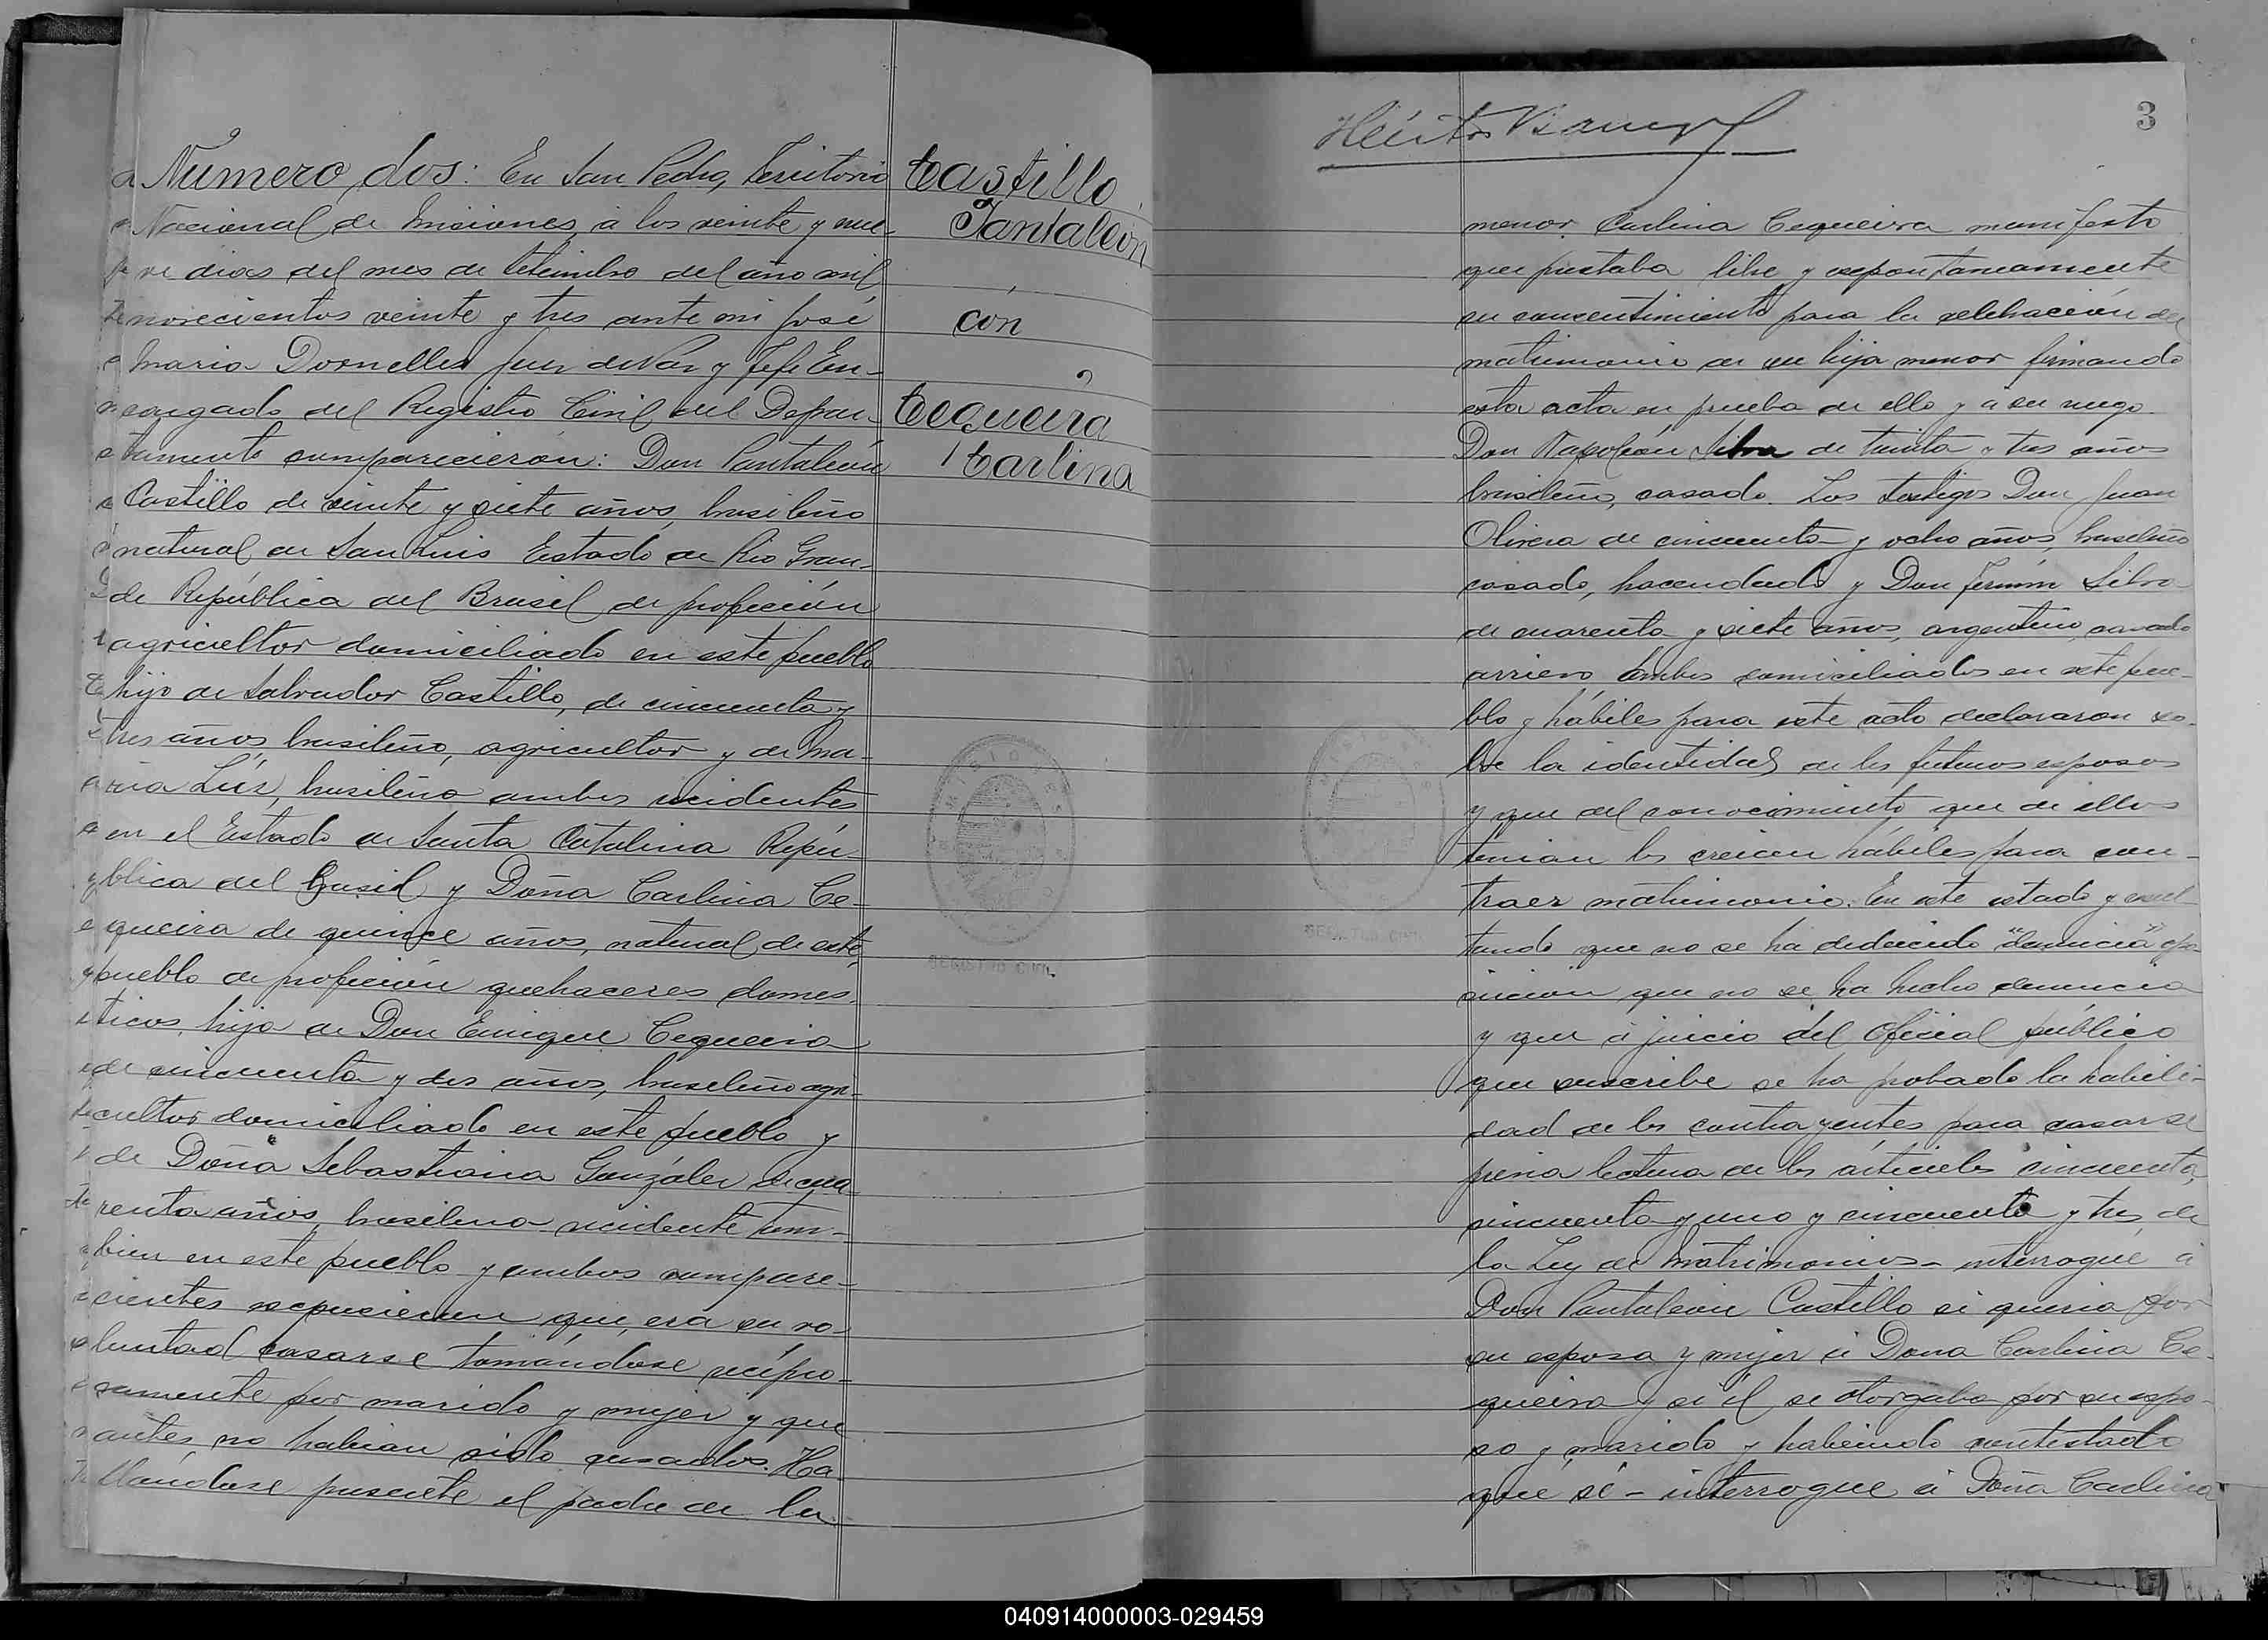 Número dos: En San Pedro, Territorio
Nacional de Misiones, á los veinte y nue-
ve dias del mes de Setiembre del año mil
novecientos veinte y tres ante mi José
Maria Dornelles Juez de Paz y Jefe En-
cargado del Registro Civil del Depar-
tamento comparecierón: Don Pantaleón
Castillo de veinte y siete años, brasileño
natural de San Luis Estado de Rio Gran-
de República del Brasil de profeción
agricultor domiciliado en este pueblo
hijo de Salvador Castillo, de cincuenta y
tres años brasileño, agricultor y de Ma-
ria Lúz, brasileña ambos recidentes
en el Estado de Santa Catalina Repú-
blica del Brasil y Doña Carlina Ce-
queira de quince años, natural de este
pueblo de profeción quehaceres domes-
ticos, hija de Don Enrique Cequeira
de cincuenta y dos años, brasileño agri-
cultor domiciliado en este pueblo y
de Doña Sebastiana Gonzáles de cua-
renta años, brasilera recidente tam-
bien en este pueblo y ambos compare-
cientes expusieron que, era su vo-
luntad casarse tomándose recípro-
camente por marido y mujer y que
antes no habian sido casados. Ha-
llándose presente el padre de la
Castillo
Pantaleón
con
Cequeira
Carlina
MISIONES
REGISTRO CIVIL
3
menor Carlina Cequeira manifesto
que prestaba libre y espontaneamente
su concentimiento para la celebración del
matrimonio de su hija menor firmando
esta acta en prueba de ello y á su ruego
Don Napoleón Silva de treinta y tres años
brasileño, casado. Los testigos Don Juan
Olivera de cincuenta y ocho años, brasileño
casado, hacendado y Don Fermín Silva
de cuarenta y siete años, argentino, casado
arriero, ambos domiciliados en este pue-
blo y hábiles para este acto declararon so-
bre la identidad de los futuros esposos
y que del conocimiento que de ellos
tenian los creian hábiles para con-
traer matrimonio. En este estado y resul-
tando que no se ha deducido "denuncia" opo-
sicion que no se ha hecho denuncia
y que á juicio del Oficial público
que suscribe se ha probado la habili-
dad de los contrayentes para casarse
previa lectura de los artículos cincuenta,
cincuenta y uno y cincuenta y tres de
la Ley de Matrimonios - interrogué á
Don Pantaleón Castillo si queria por
su esposa y mujer á Dona Carlina Ce-
queira y si él se otorgaba por su espo-
so y marido y habiendo contestado
que sí - interrogue á Doña Carlina
REGISTRO CIVIL
040914000003-029459